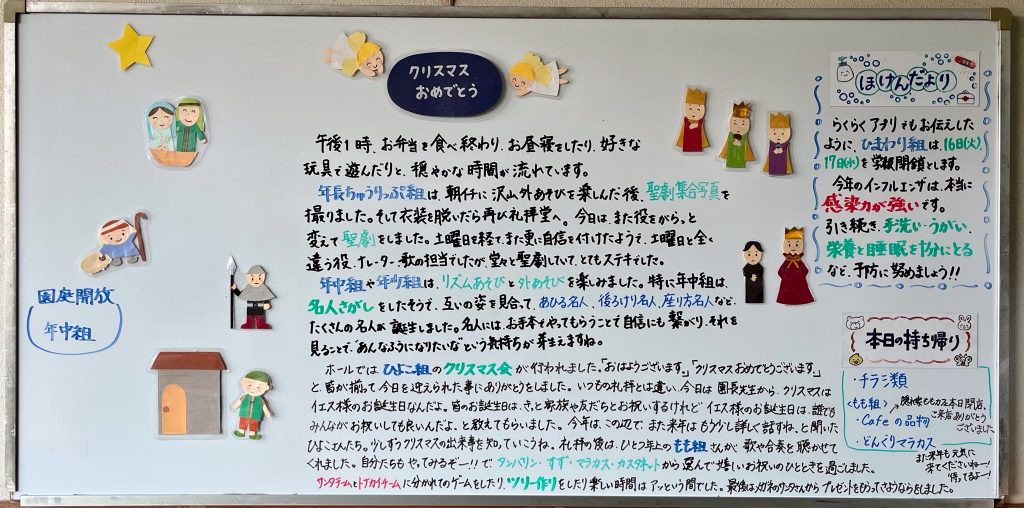 クリスマス
おめでとう
午後1時、お弁当を食べ終わり、お昼寝をしたり、好きな
玩具で遊んだりと、穏やかな時間が流れています。
年長ちゅうりっぷ組は、朝イチに沢山外あそびを楽しんだ後、聖劇集合写真を
撮りました。そして衣装を脱いだら再び礼拝堂へ。今日は、また役をがらっと
変えて聖劇をしました。土曜日を経て、また更に自信を付けたようで、土曜日と全く
違う役、ナレーター・歌の担当でしたが、堂々と聖劇していて、とてもステキでした。
年中組や年少組は、リズムあそびと外あそびを楽しみました。特に年中組は、
名人さがしをしたそうで、互いの姿を見合って、あひる名人、後ろけり名人、座り方名人など、
たくさんの名人が誕生しました。名人には、お手本をやってもらうことで自信にも繋がり、それを
見ることで、"あんなふうになりたいな"という気持ちが芽生えますね。
ホールではひよこ組のクリスマス会が行われました。「おはようございます。」「クリスマスおめでとうございます。」
と、皆が揃って今日を迎えられた事にありがとうをしました。いつもの礼拝とは違い、今日は園長先生から、クリスマスは
イエス様のお誕生日なんだよ。皆のお誕生日は、きっと家族や友だちとお祝いするけれど、イエス様のお誕生日は、誰でも
みんながお祝いしても良いんだよ。と教えてもらいました。今年は、この辺で、また来年はもう少し詳しく話すね、と聞いた
ひよこさんたち。少しずつクリスマスの出来事を知っていこうね。礼拝の後は、ひとつ年上のもも組さんが歌や合奏を聴かせて
くれました。自分たちもやってみるぞー!!でタンバリン・すず・マラカス・カスタネットから選んで嬉しいお祝いのひとときを過ごしました。
サンタチームとトナカイチームに分かれてのゲームをしたり、ツリー作りをしたり楽しい時間はアッという間でした。最後はメガネのサンタさんからプレゼントをもらってさようならをしました。
園庭開放
年中組
ほけんだより
らくらくアプリでもお伝えした
ように、ひまわり組は、16日(火)、
17日(水)を学級閉鎖とします。
今年のインフルエンザは、本当に
感染力が強いです。
引き続き、手洗い・うがい、
栄養と睡眠を十分にとる
など、予防に努めましょう!!
本日の持ち帰り
・チラシ類
<もも組>
・Cafeの品物
・どんぐりマラカス
ももカフェ本日閉店、
ご来店ありがとう
ございました
また来年も元気に
来てくださいねー!
待ってるよー!